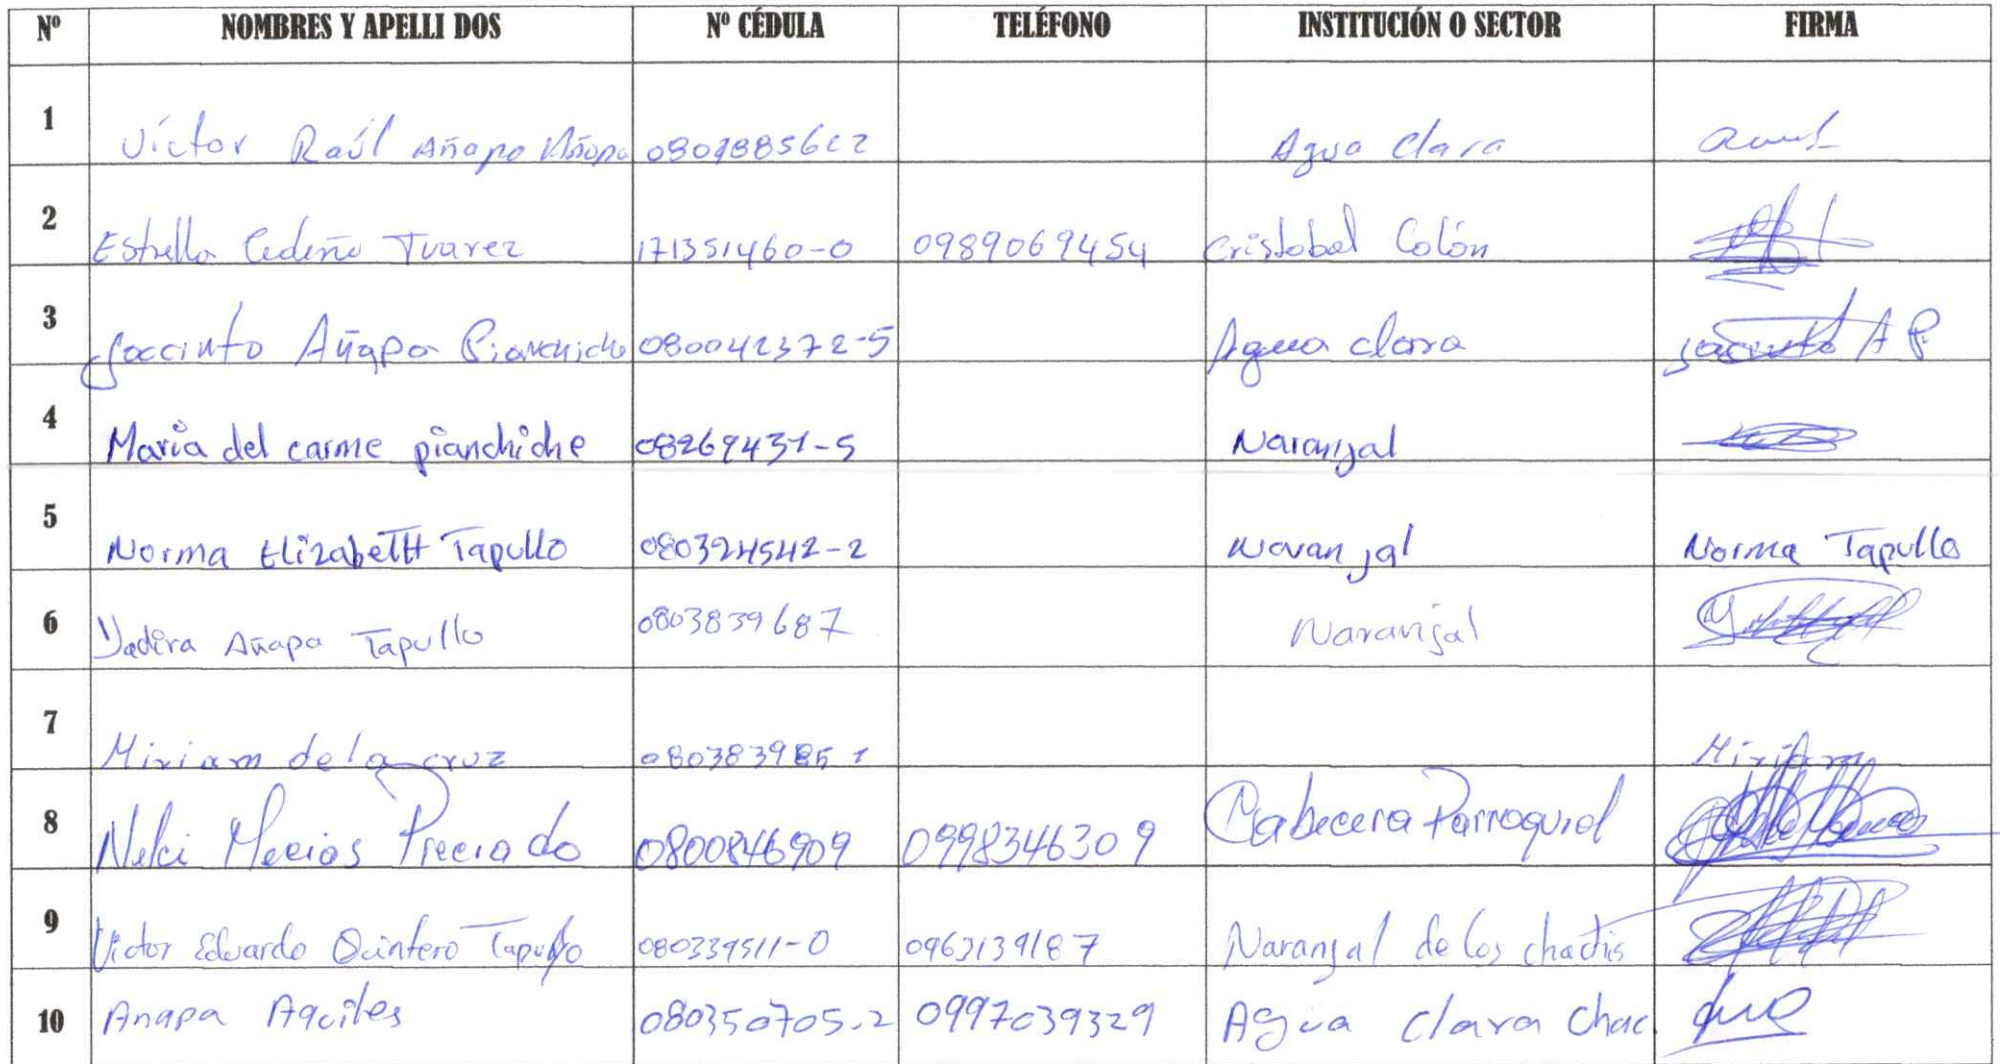 Nº NOMBRES Y APELLI DOS Nº CÉDULA TELÉFONO INSTITUCIÓN O SECTOR FIRMA
1 Víctor Raúl Añapo Añapa Agua Clara
2 Estrella Cedeño Tuarez 171351460-0 0989069454 Cristobal Colón
3 Jaccinto Añapa Pianchiche 080042372-5 Agua clara Jacinto A P
4 Maria del carme pianchiche 08269431-5 Naranjal
5 Norma Elizabeth Tapullo 080324542-2 Naranjal Norma Tapullo
6 Yadira Añapa Tapullo 0803839687 Naranjal
7 Miriam de la cruz Miriam
8 Nelci Macias Preciado 0800846909 0998346309 Cabecera Parroquial
9 Victor Eduardo Quintero Tapullo 080339511-0 0963139187 Naranjal de los chachis
10 Anapa Aquiles 080350705-2 0997039329 Agua clara Chac